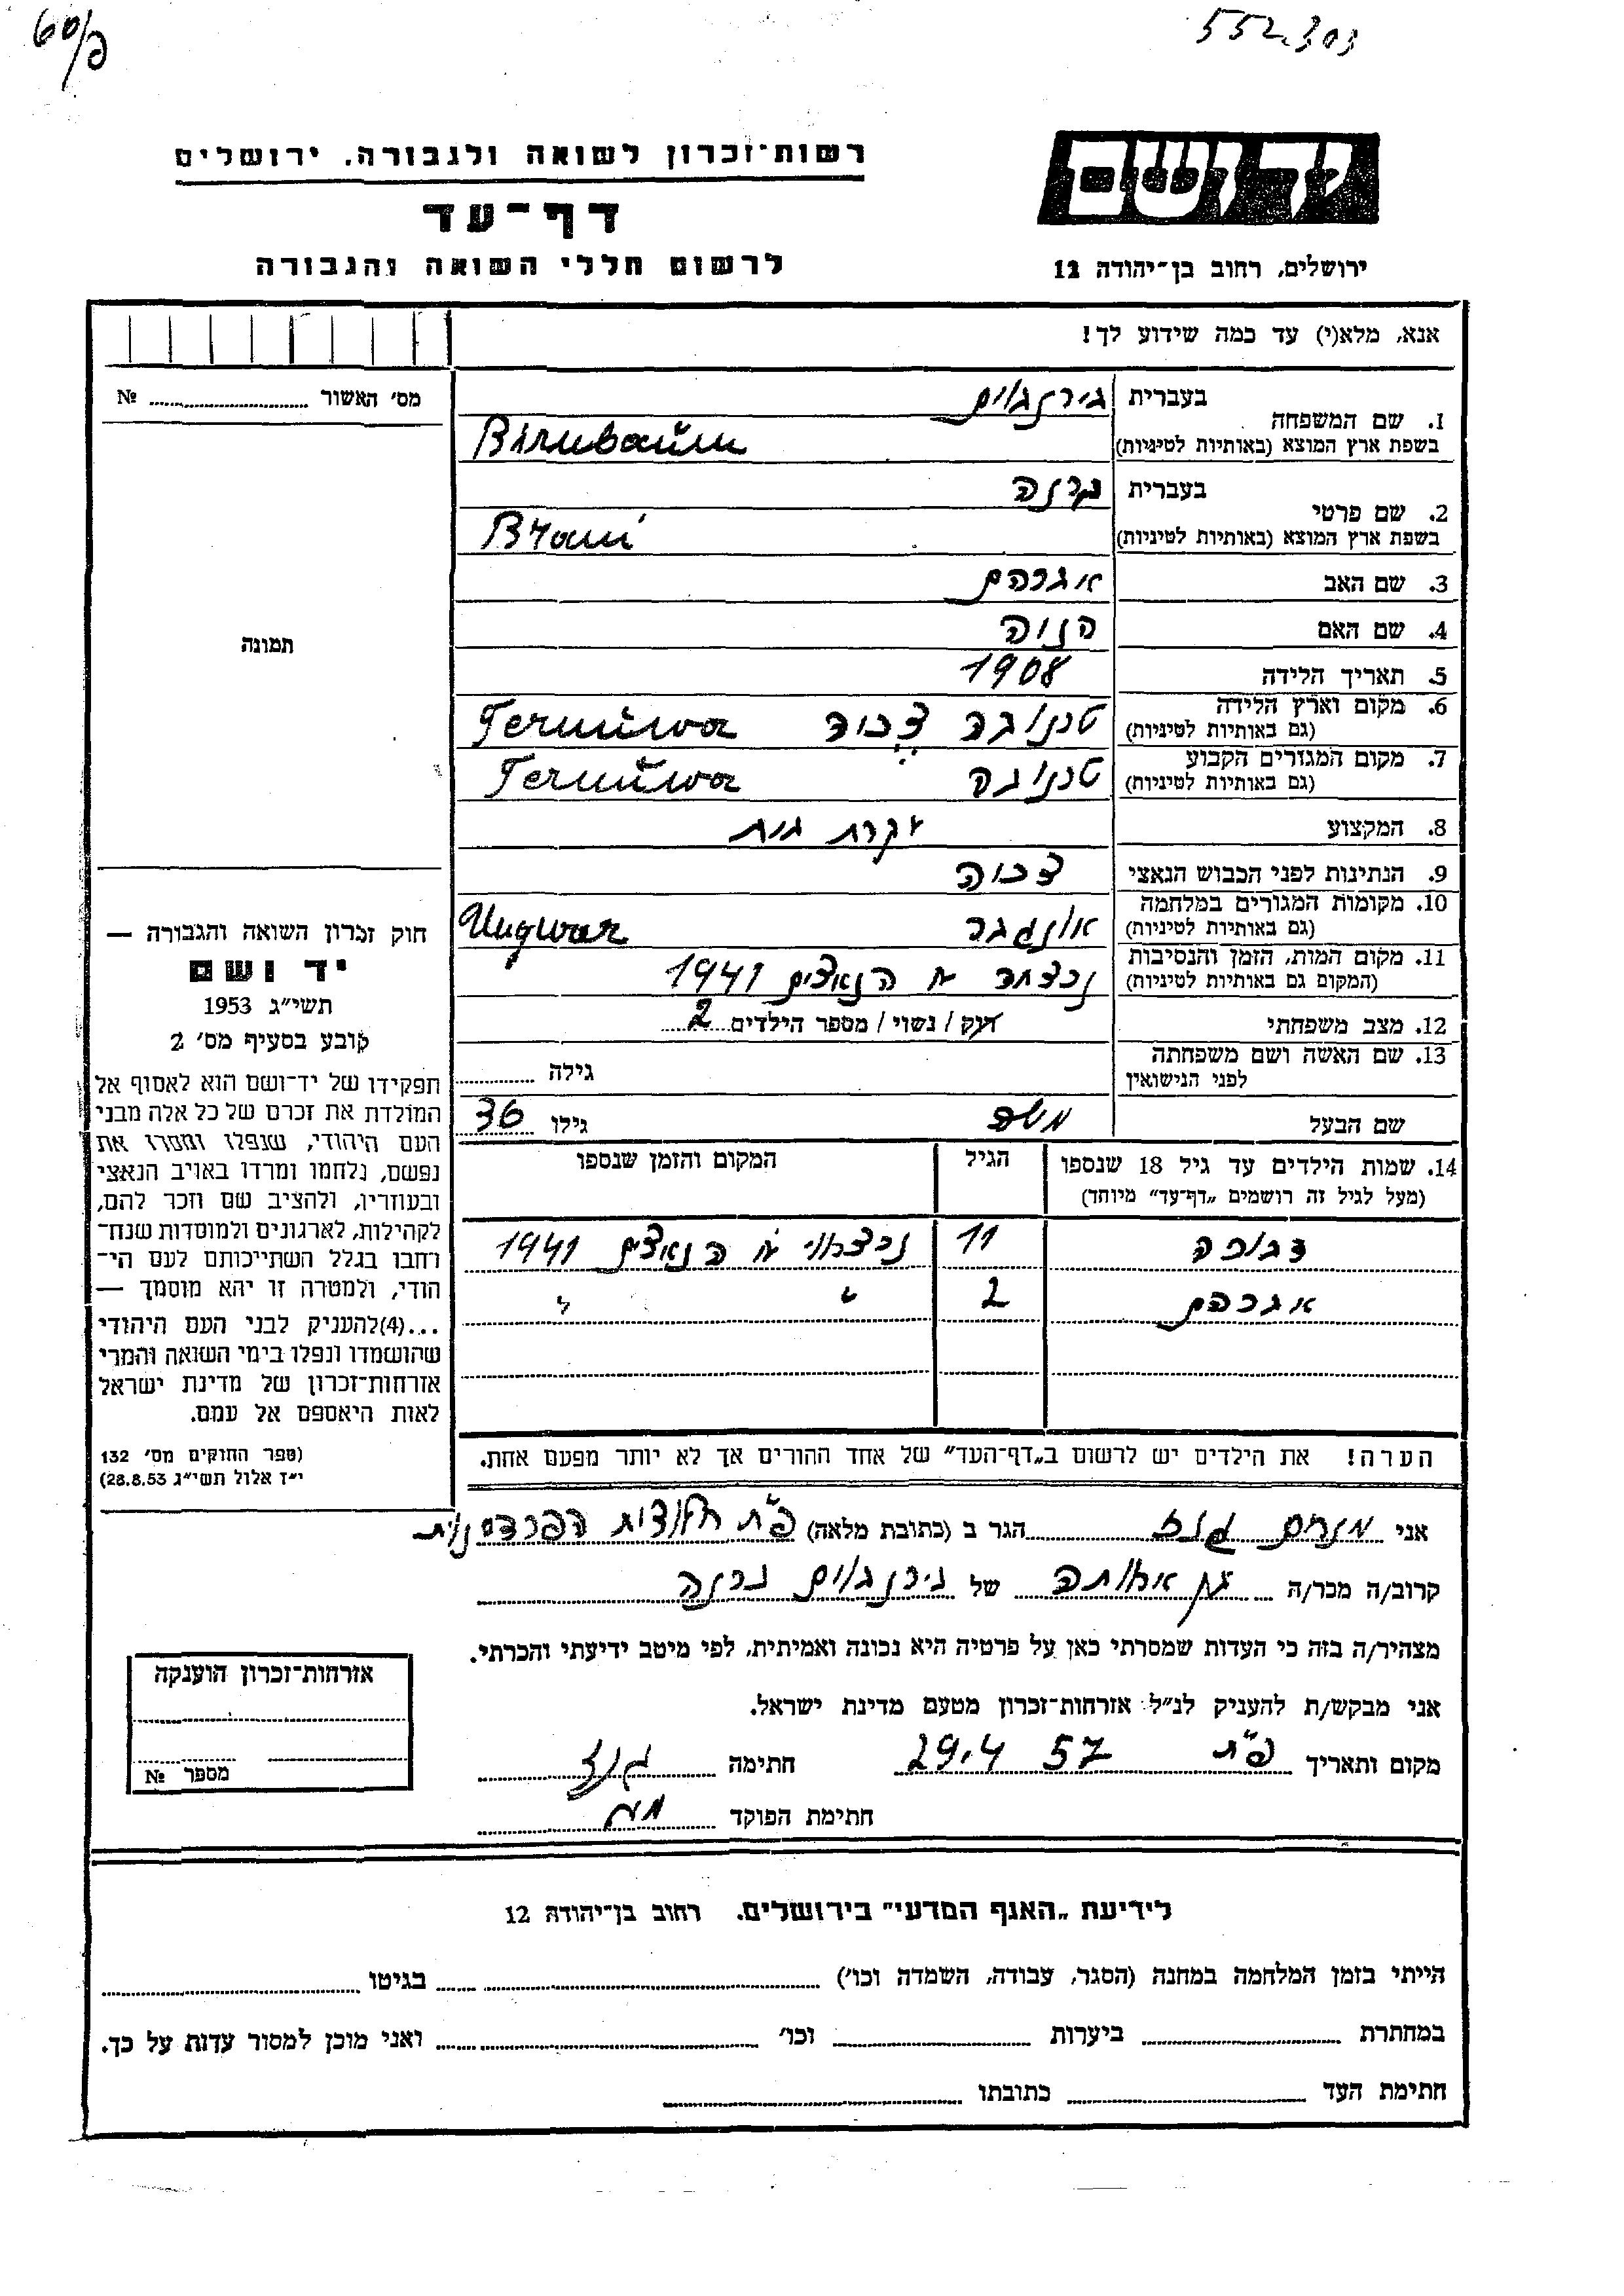 60/פ
552.303
יד ושם
ירושלים, רחוב בן־יהודה 12
רשות־זכרון לשואה ולגבורה, ירושלים
דף־עד
לרשום חללי השואה והגבורה
אנא, מלא(י) עד כמה שידוע לך!
מס׳ האשור № ........
1. שם המשפחה בעברית בירנבוים
בשפת ארץ המוצא (באותיות לטיניות) Birnbaum
2. שם פרטי בעברית ברנה
בשפת ארץ המוצא (באותיות לטיניות) Brani
3. שם האב אברהם
4. שם האם חנוה
5. תאריך הלידה 1908
6. מקום וארץ הלידה טרנובה צ׳כיה Ternuwa
(גם באותיות לטיניות)
7. מקום המגורים הקבוע טרנובה Ternuwa
(גם באותיות לטיניות)
8. המקצוע עקרת בית
9. הנתינות לפני הכבוש הנאצי צ׳כיה
10. מקומות המגורים במלחמה אונגבר Ungwar
(גם באותיות לטיניות)
11. מקום המות, הזמן והנסיבות נרצחה ע״י הנאצים 1941
(המקום גם באותיות לטיניות)
12. מצב משפחתי רוק / נשוי / מספר הילדים 2
13. שם האשה ושם משפחתה גילה
לפני הנישואין
שם הבעל משה גילו 36
14. שמות הילדים עד גיל 18 שנספו הגיל המקום והזמן שנספו
(מעל לגיל זה רושמים „דף־עד” מיוחד)
דבורה 11 נרצחו ע״י הנאצים 1941
אברהם 2 " "
הערה! את הילדים יש לרשום ב„דף־העד” של אחד ההורים אך לא יותר מפעם אחת.
תמונה
חוק זכרון השואה והגבורה —
יד ושם
תשי״ג 1953
קובע בסעיף מס׳ 2
תפקידו של יד־ושם הוא לאסוף אל
המולדת את זכרם של כל אלה מבני
העם היהודי, שנפלו ומסרו את
נפשם, נלחמו ומרדו באויב הנאצי
ובעוזריו, ולהציב שם וזכר להם,
לקהילות, לארגונים ולמוסדות שנח־
רחבו בגלל השתייכותם לעם הי־
הודי, ולמטרה זו יהא מוסמך —
...(4)להעניק לבני העם היהודי
שהושמדו ונפלו בימי השואה והמרי
אזרחות־זכרון של מדינת ישראל
לאות היאספם אל עמם.
(ספר החוקים מס׳ 132
י״ז אלול תשי״ג 28.8.53)
אני מנחם גנז הגר ב (כתובת מלאה) פ״ת חלוצות הפרדסנות
קרוב/ה מכר/ה בן אחותה של בירנבוים ברנה
מצהיר/ה בזה כי העדות שמסרתי כאן על פרטיה היא נכונה ואמיתית, לפי מיטב ידיעתי והכרתי.
אני מבקש/ת להעניק לנ״ל אזרחות־זכרון מטעם מדינת ישראל.
מקום ותאריך פ״ת 29.4 57 חתימה גנז
חתימת הפוקד
אזרחות־זכרון הוענקה
מספר №
לידיעת „האגף המדעי” בירושלים. רחוב בן־יהודה 12
הייתי בזמן המלחמה במחנה (הסגר, עבודה, השמדה וכו׳) ........ בגיטו ........
במחתרת ........ ביערות ........ וכו׳ ........ ואני מוכן למסור עדות על כך.
חתימת העד ........ כתובתו ........